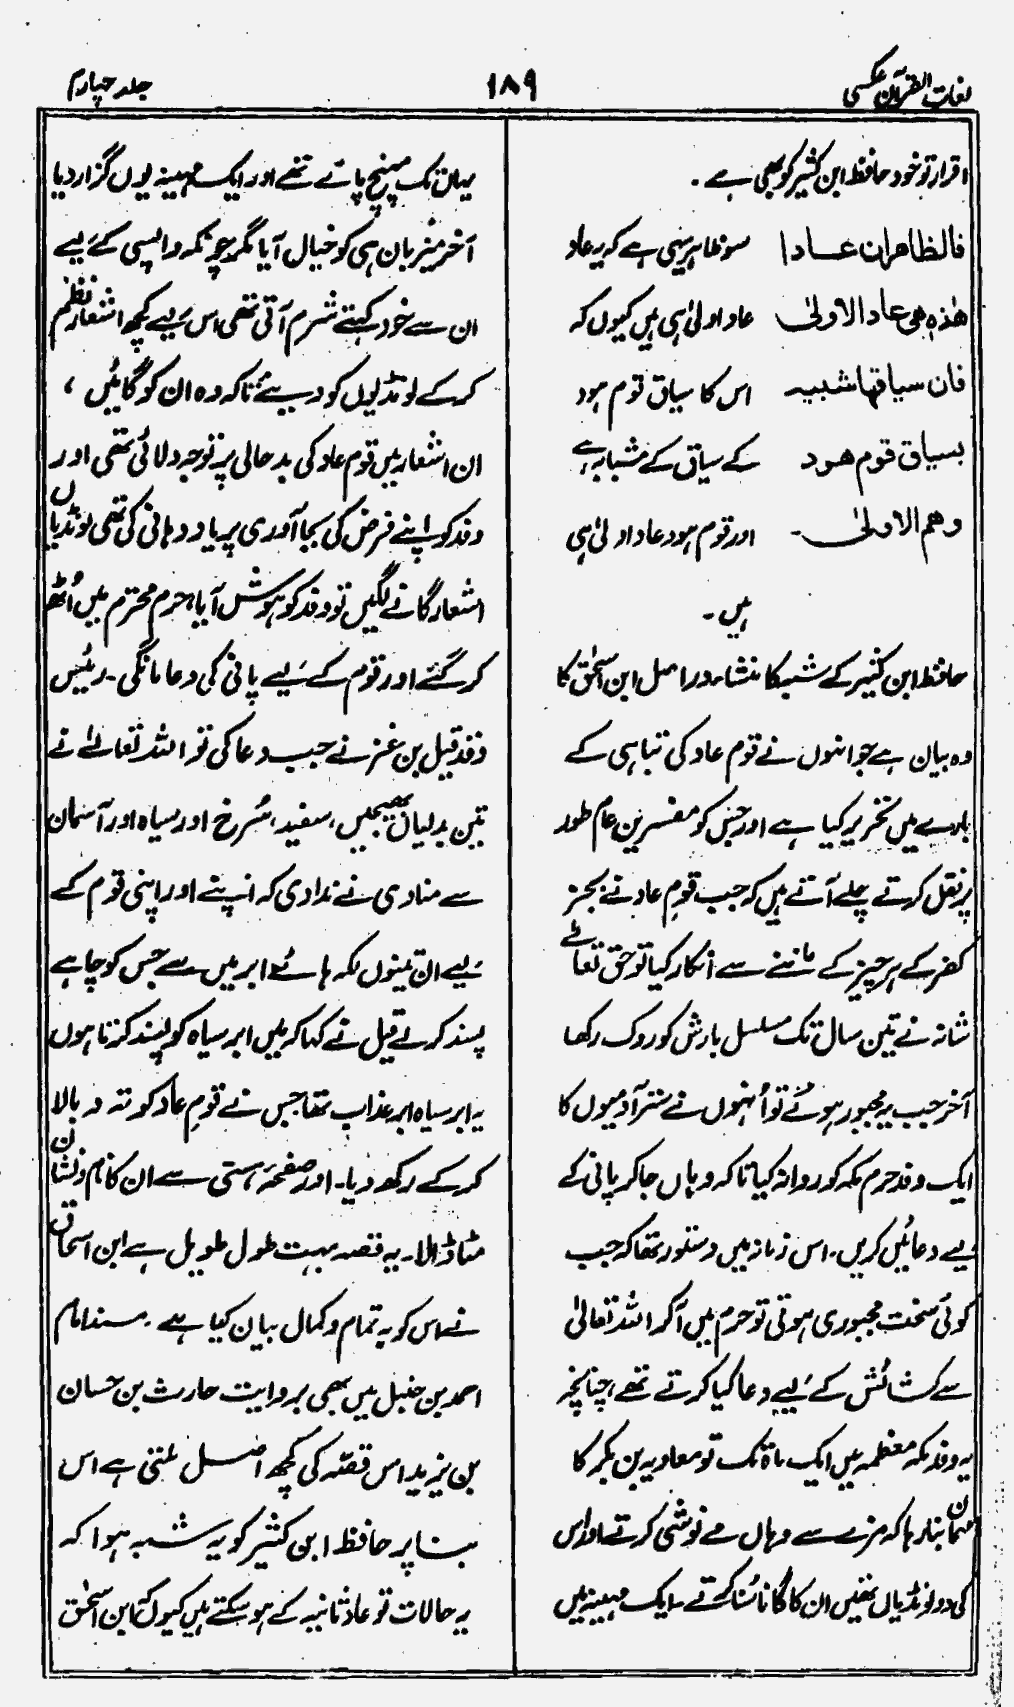 لغات القرآن عکسی
۱۸۹
جلد چہارم
اقرار تو خود حافظ ابن کثیر کو بھی ہے ۔
فالظاهران عادا سو ظاہر یہی ہے کہ یہ عاد
هٰذه هی عاد الاولیٰ عاد اولیٰ ہی ہیں کیوں کہ
فان سیاقها شبیه اس کا سیاق قوم ہود
بسیاق قوم هود کے سیاق کے مشابہ ہے
وهم الاولیٰ۔ اور قوم ہود عاد اولیٰ ہی
ہیں ۔
حافظ ابن کثیر کے شبہ کا منشاء دراصل ابن اسحٰق کا
وہ بیان ہے جو انہوں نے قوم عاد کی تباہی کے
بارے میں تحریر کیا ہے اور جس کو مفسرین عام طور
پر نقل کرتے چلے آتے ہیں کہ جب قومِ عاد نے بجز
کفر کے ہر چیز کے ماننے سے انکار کیا تو حق تعالیٰ
شانہ نے تین سال تک مسلسل بارش کو روک رکھا
آخر جب یہ مجبور ہوئے تو اُنہوں نے ستر آدمیوں کا
ایک وفد حرم مکہ کو روانہ کیا تاکہ وہاں جا کر پانی کے
لیے دعائیں کریں۔ اس زمانہ میں دستور تھا کہ جب
کوئی سخت مجبوری ہوتی تو حرم میں آکر اللہ تعالیٰ
سے کشائش کے لیے دعا کیا کرتے تھے، چنانچہ
یہ وفد مکہ معظمہ میں ایک ماہ تک تو معاویہ بن بکر کا
مہمان بنا رہا کہ مزے سے وہاں مے نوشی کرتے اور اس
کی دو لونڈیاں تھیں ان کا گانا سُنا کرتے۔ ایک مہینہ میں
یہاں تک پہنچ پائے تھے اور ایک مہینہ یوں گزار دیا
آخر میزبان ہی کو خیال آیا مگر چونکہ واپسی کے لیے
ان سے خود کہتے شرم آتی تھی اس لیے کچھ اشعار نظم
کرکے لونڈیوں کو دیئے تاکہ وہ ان کو گائیں ،
ان اشعار میں قوم عاد کی بدحالی پر توجہ دلائی تھی اور
وفد کو اپنے فرض کی بجا آوری پر یاد دہانی کی تھی لونڈیاں
اشعار گانے لگیں تو وفد کو ہوش آیا، حرم محترم میں اُٹھ
کر گئے اور قوم کے لیے پانی کی دعا مانگی۔ رئیس
وفد قیل بن عنز نے جب دعا کی تو اللہ تعالےٰ نے
تین بدلیاں بھیجیں، سفید، سُرخ اور سیاہ اور آسمان
سے منادی نے ندا دی کہ اپنے اور اپنی قوم کے
لیے ان تینوں لکہ ہائے ابر میں سے جس کو چاہے
پسند کر لے قیل نے کہا کہ میں ابر سیاہ کو پسند کرتا ہوں
یہ ابر سیاہ ابر عذاب تھا جس نے قومِ عاد کو تہ و بالا
کرکے رکھ دیا۔ اور صفحہ ہستی سے ان کا نام و نشان
مٹا ڈالا۔ یہ قصہ بہت طول طویل ہے ابن اسحاق
نے اس کو بہ تمام و کمال بیان کیا ہے ۔ مسند امام
احمد بن حنبل میں بھی بروایت حارث بن حسان
بن یزید اس قصّہ کی کچھ اصل ملتی ہے اس
بنا پر حافظ ابن کثیر کو یہ شبہ ہوا کہ
یہ حالات تو عاد ثانیہ کے ہو سکتے ہیں کیوں کہ ابن اسحٰق